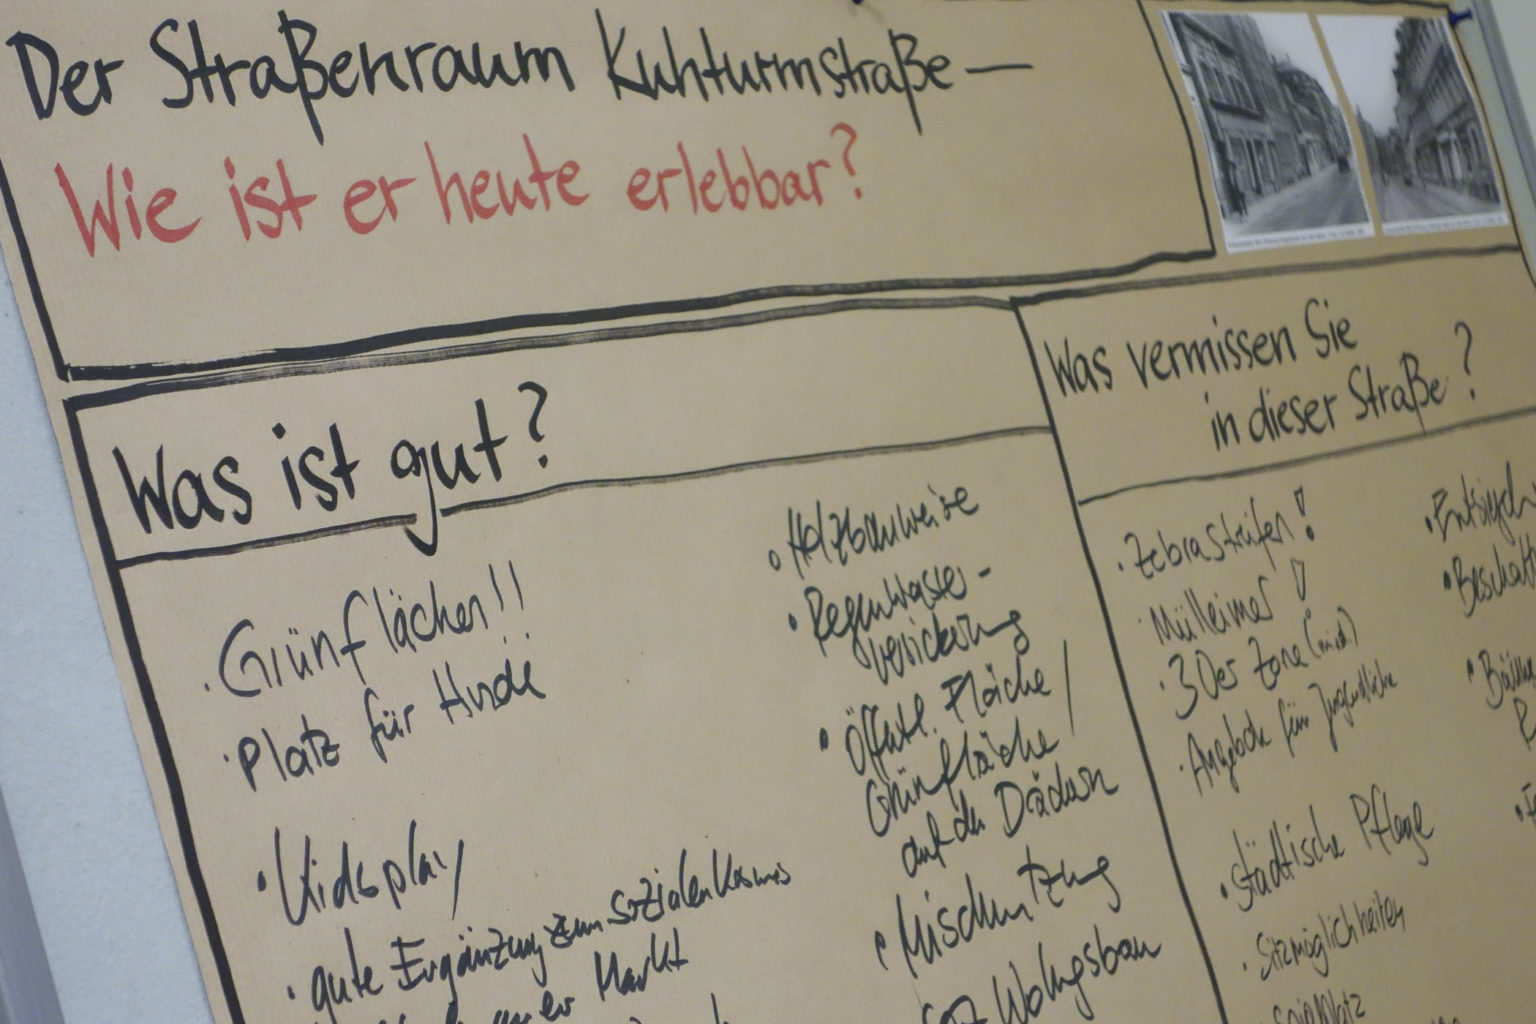 Der Straßenraum Kuhturmstraße —
Wie ist er heute erlebbar?
Was ist gut?
· Grünflächen!!
· Platz für Hunde
· Kidsplay
· gute Ergänzung zum sozialen Kosmos
Markt
· Holzbauweise
· Regenwasser-
versickerung
· Öffentl. Fläche /
Grünfläche /
auf den Dächern
· Mischnutzung
Soz Wohngsbau
Was vermissen Sie
in dieser Straße?
· Zebrastreifen!
· Mülleimer!
· 30er Zone
· Angebote für Jugendliche
· Städtische Pflege
· Sitzmöglichkeiten
Spielplatz